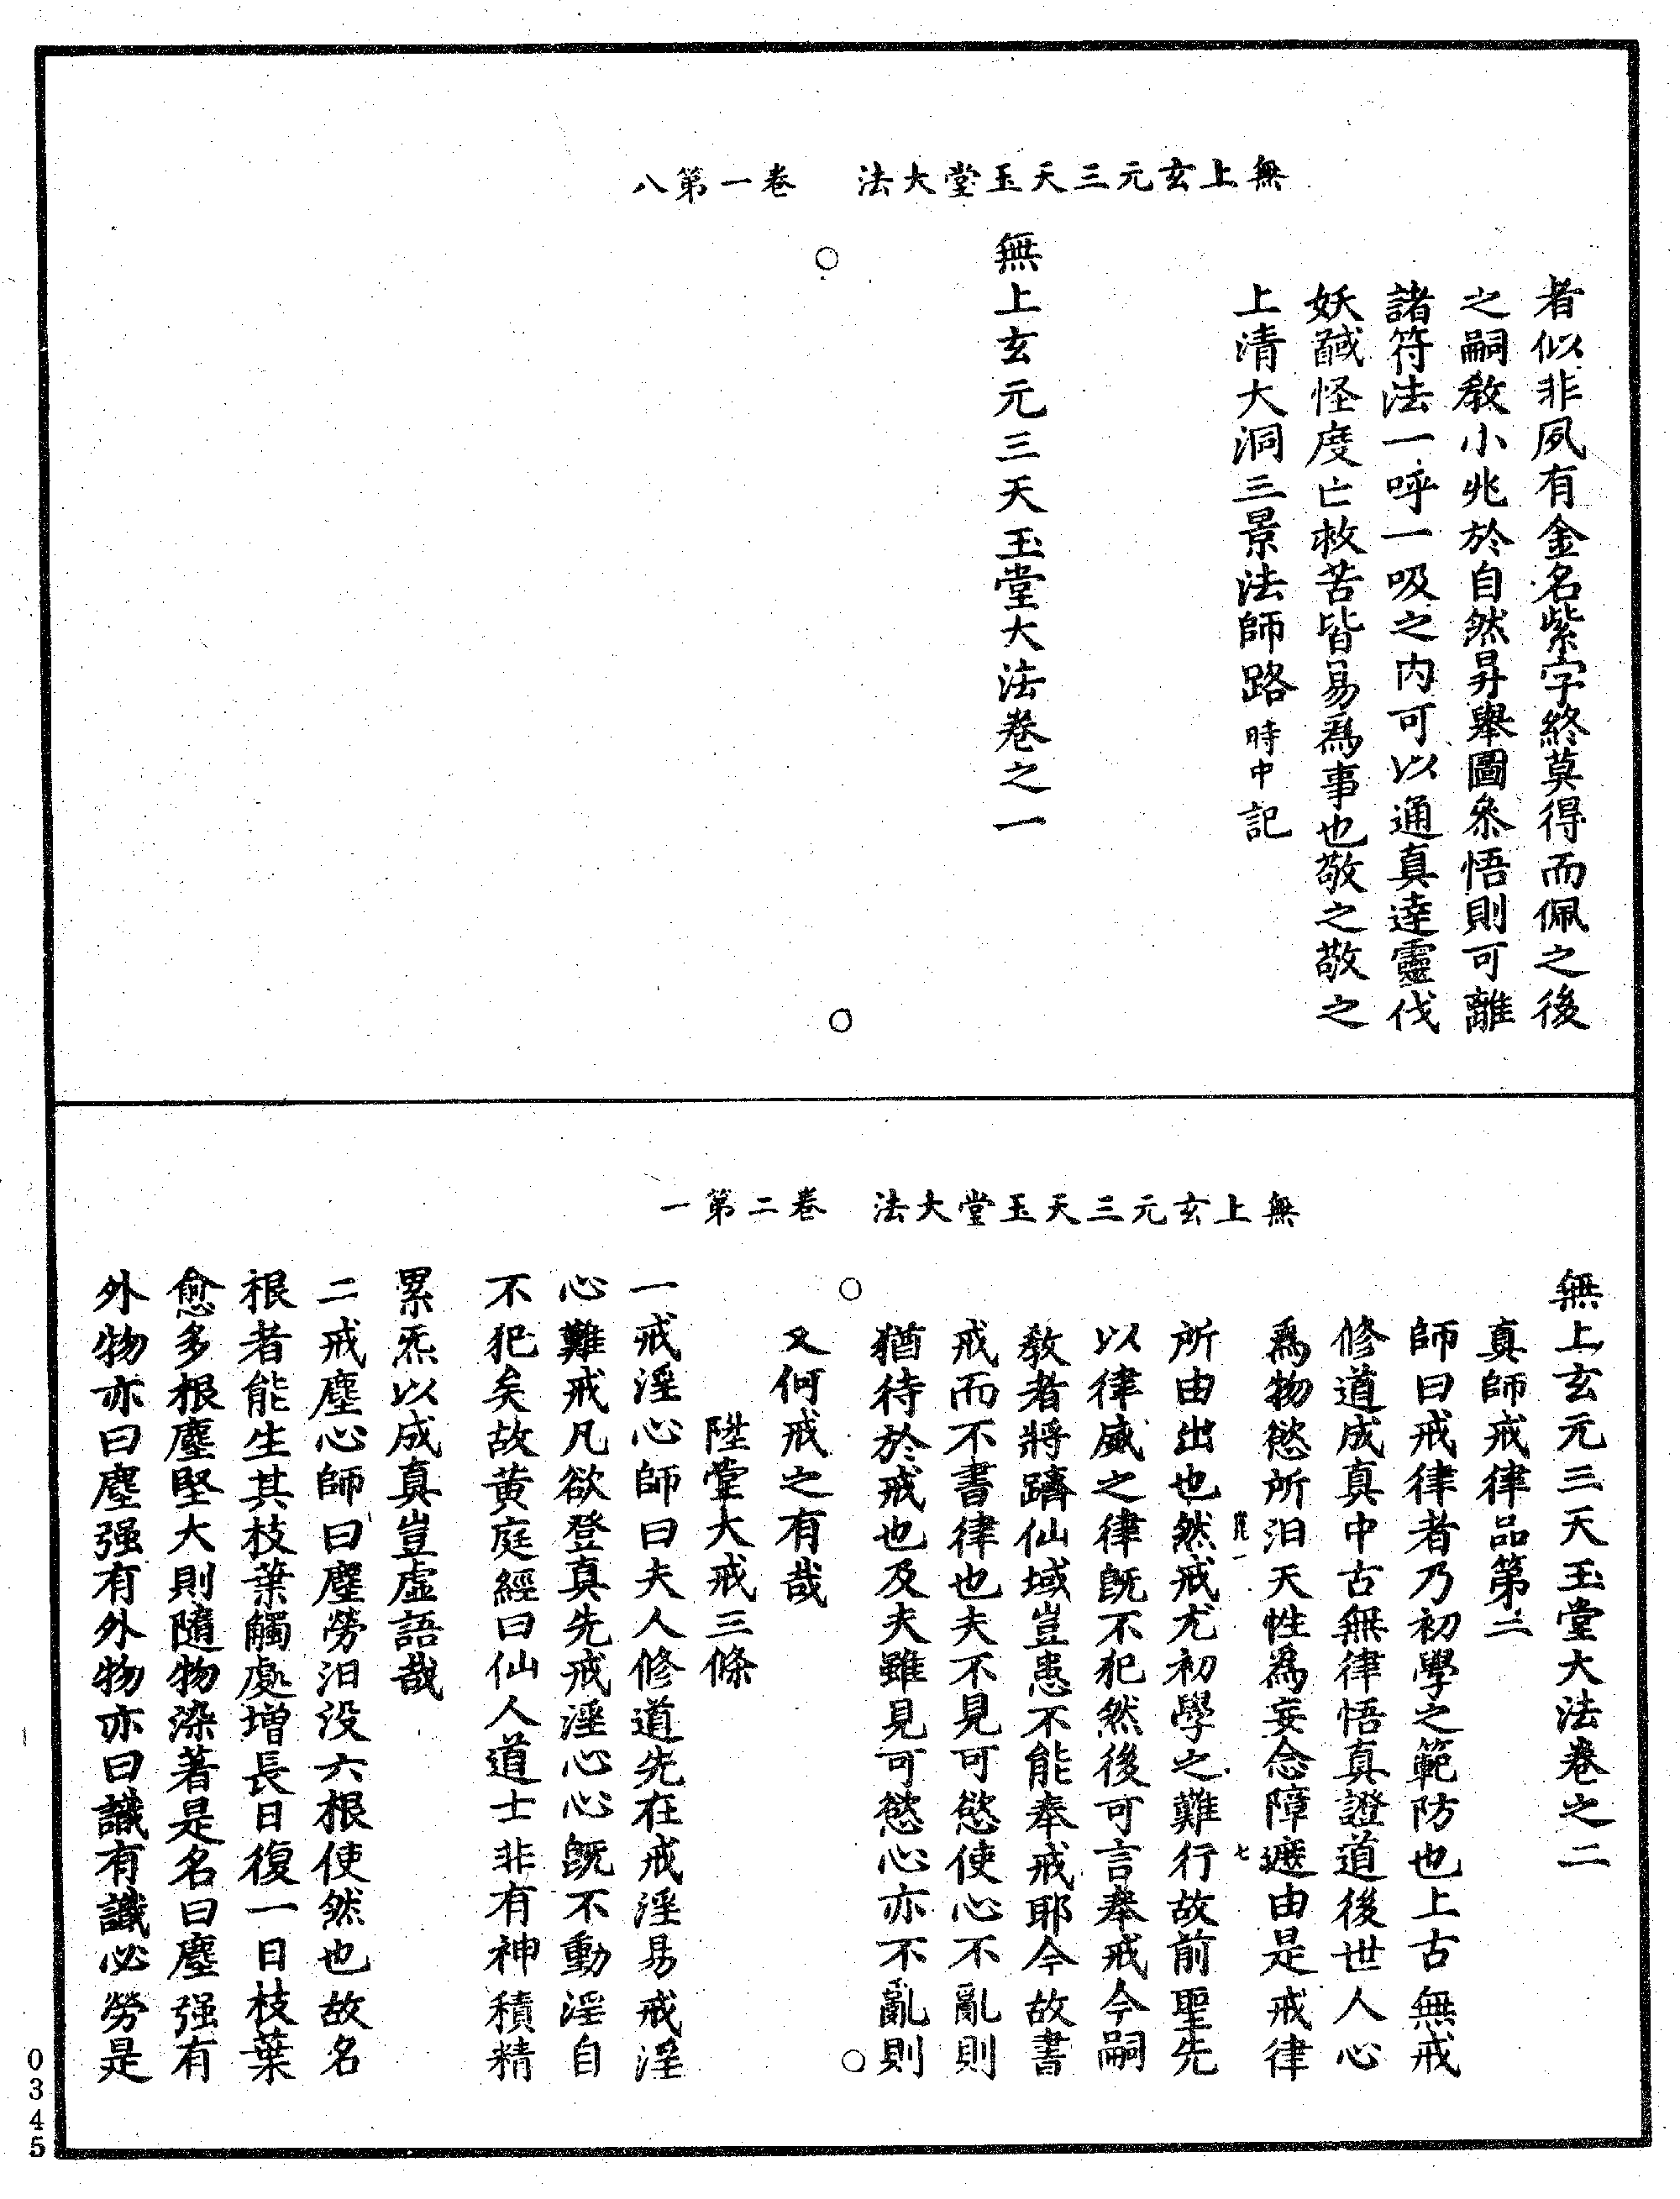 無上玄元三天玉堂大法　卷一第八
者似非夙有金名紫字終莫得而佩之後
之嗣教小兆於自然昇舉圖叅悟則可離
諸符法一呼一吸之内可以通真達靈伐
妖馘怪度亡救苦皆易爲事也敬之敬之
上清大洞三景法師路時中記
無上玄元三天玉堂大法卷之一
無上玄元三天玉堂大法　卷二第一
無上玄元三天玉堂大法卷之二
真師戒律品第二
師曰戒律者乃初學之範防也上古無戒
修道成真中古無律悟真證道後世人心
爲物慾所汨天性爲妄念障遮由是戒律
一　七
所由出也然戒尤初學之難行故前聖先
以律威之律既不犯然後可言奉戒今嗣
教者將躋仙域豈患不能奉戒耶今故書
戒而不書律也夫不見可慾使心不亂則
猶待於戒也及夫雖見可慾心亦不亂則
又何戒之有哉
陞堂大戒三條
一戒淫心師曰夫人修道先在戒淫易戒淫
心難戒凡欲登真先戒淫心心既不動淫自
不犯矣故黄庭經曰仙人道士非有神積精
累炁以成真豈虚語哉
二戒塵心師曰塵勞汨没六根使然也故名
根者能生其枝葉觸處增長日復一日枝葉
愈多根塵堅大則隨物染著是名曰塵强有
外物亦曰塵强有外物亦曰識有識必勞是
0345